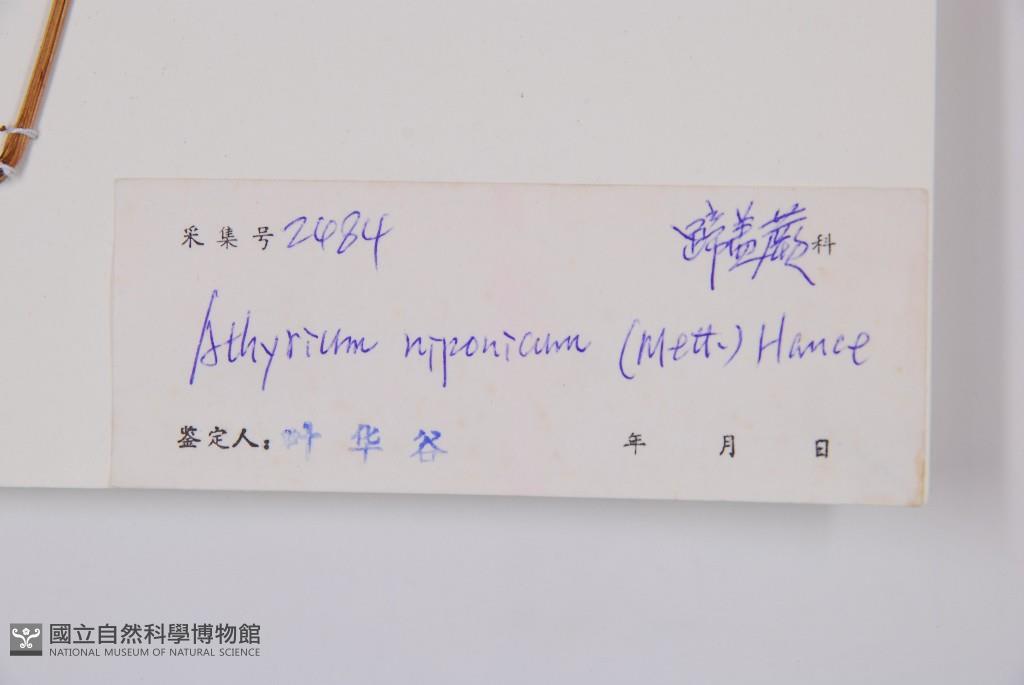 采集号 2484 蹄盖蕨科
Athyrium niponicum (Mett.) Hance
鉴定人: 叶华谷 年 月 日
國立自然科學博物館
NATIONAL MUSEUM OF NATURAL SCIENCE